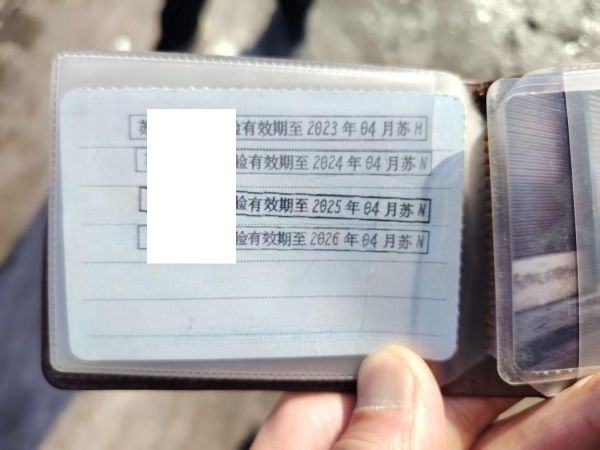 苏 验有效期至2023年04月苏H
验有效期至2024年04月苏N
验有效期至2025年04月苏N
验有效期至2026年04月苏N